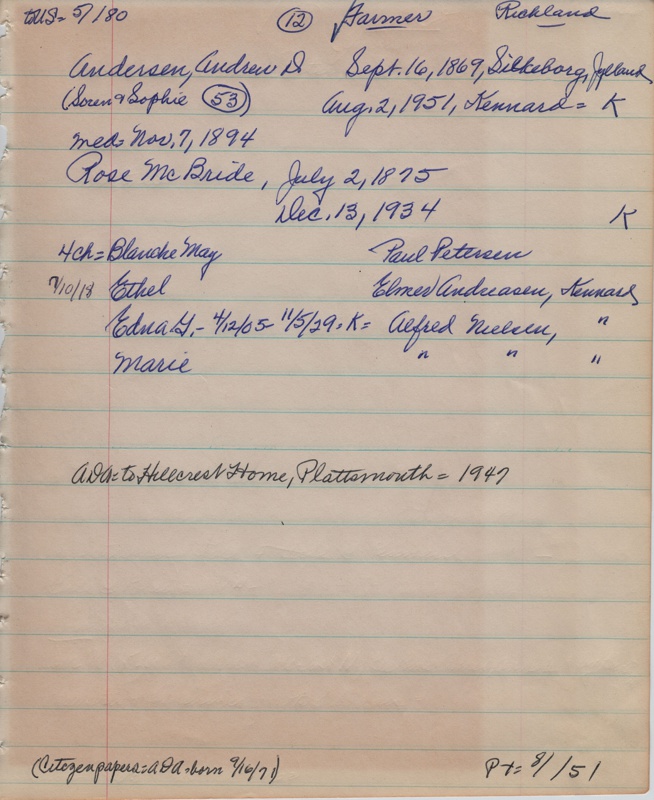 to US = 5/180 (12) Farmer Richland
Andersen, Andrew D. Sept. 16, 1869, Silkeborg, Jylland
(Soren & Sophie (53)) Aug. 2, 1951, Kennard = K
med = Nov. 7, 1894
Rose McBride, July 2, 1875
Dec. 13, 1934 K
4 ch = Blanche May Paul Petersen
7/10/18 Ethel Elmer Andreasen, Kennard
Edna G. - 4/12/05 - 11/5/29 = K = Alfred Nielsen, "
Marie " " "
ADA = to Hillcrest Home, Plattsmouth = 1947
(Citizen papers = ADA = born 9/16/71) Pt = 8/ /51